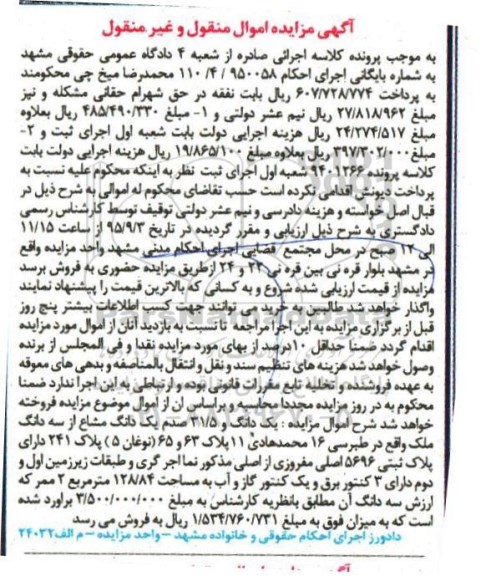 آگهی مزایده اموال منقول و غیر منقول
به موجب پرونده کلاسه اجرائی صادره از شعبه ۴ دادگاه عمومی حقوقی مشهد
به شماره بایگانی اجرای احکام ۹۵۰۰۵۸ / ۴/ ۱۱۰ محمدرضا میخ چی محکومند
به پرداخت ۶۰۷/۷۲۸/۷۷۴ ریال بابت نفقه در حق شهرام حقانی مشکله و نیز
مبلغ ۲۷/۸۱۸/۹۶۲ ریال نیم عشر دولتی و ۱- مبلغ ۴۸۵/۴۹۰/۳۳۰ ریال بعلاوه
مبلغ ۲۴/۲۷۴/۵۱۷ ریال هزینه اجرایی دولت بابت شعبه اول اجرای ثبت و ۲-
مبلغ ۳۹۷/۳۰۲/۰۰۰ ریال بعلاوه مبلغ ۱۹/۸۶۵/۱۰۰ ریال هزینه اجرایی دولت بابت
کلاسه پرونده ۹۴۰۱۲۶۶ شعبه اول اجرای ثبت نظر به اینکه محکوم علیه نسبت به
پرداخت دیونش اقدامی نکرده است حسب تقاضای محکوم له اموالی به شرح ذیل در
قبال اصل خواسته و هزینه دادرسی و نیم عشر دولتی توقیف توسط کارشناس رسمی
دادگستری به شرح ذیل ارزیابی و مقرر گردیده در تاریخ ۹۵/۹/۳ از ساعت ۱۱/۱۵
الی ۱۲ صبح در محل مجتمع قضایی اجرای احکام مدنی مشهد واحد مزایده واقع
در مشهد بلوار قره نی بین قره نی ۲۲ و ۲۴ ازطریق مزایده حضوری به فروش برسد
مزایده از قیمت ارزیابی شده شروع و به کسانی که بالاترین قیمت را پیشنهاد نمایند
واگذار خواهد شد طالبین به خرید می توانند جهت کسب اطلاعات بیشتر پنج روز
قبل از برگزاری مزایده به این اجرا مراجعه تا نسبت به بازدید آنان از اموال مورد مزایده
اقدام گردد ضمنا حداقل ۱۰درصد از بهای مورد مزایده نقدا و فی المجلس از برنده
وصول خواهد شد هزینه های تنظیم سند و نقل و انتقال بالمناصفه و بدهی های معوقه
به عهده فروشنده و تخلیه تابع مقررات قانونی بوده و ارتباطی به این اجرا ندارد ضمنا
محکوم به در روز مزایده مجددا محاسبه و براساس آن از اموال موضوع مزایده فروخته
خواهد شد شرح اموال مزایده : یک دانگ و ۳۱/۵ صدم یک دانگ مشاع از سه دانگ
ملک واقع در طبرسی ۱۶ محمدهادی ۱۱ پلاک ۶۳ و ۶۵ (نوغان ۵) پلاک ۲۴۱ دارای
پلاک ثبتی ۵۶۹۶ اصلی مفروزی از اصلی مذکور نما آجر گری و طبقات زیرزمین اول و
دوم دارای ۳ کنتور برق و یک کنتور گاز و آب به مساحت ۱۲۸/۸۴ مترمربع ۲ ممر که
ارزش سه دانگ آن مطابق بانظریه کارشناس به مبلغ ۳/۵۰۰/۰۰۰/۰۰۰ برآورد شده
است که به میزان فوق به مبلغ ۱/۵۳۴/۷۶۰/۷۳۱ ریال به فروش می رسد
دادورز اجرای احکام حقوقی و خانواده مشهد -واحد مزایده -م الف۲۴۰۳۲